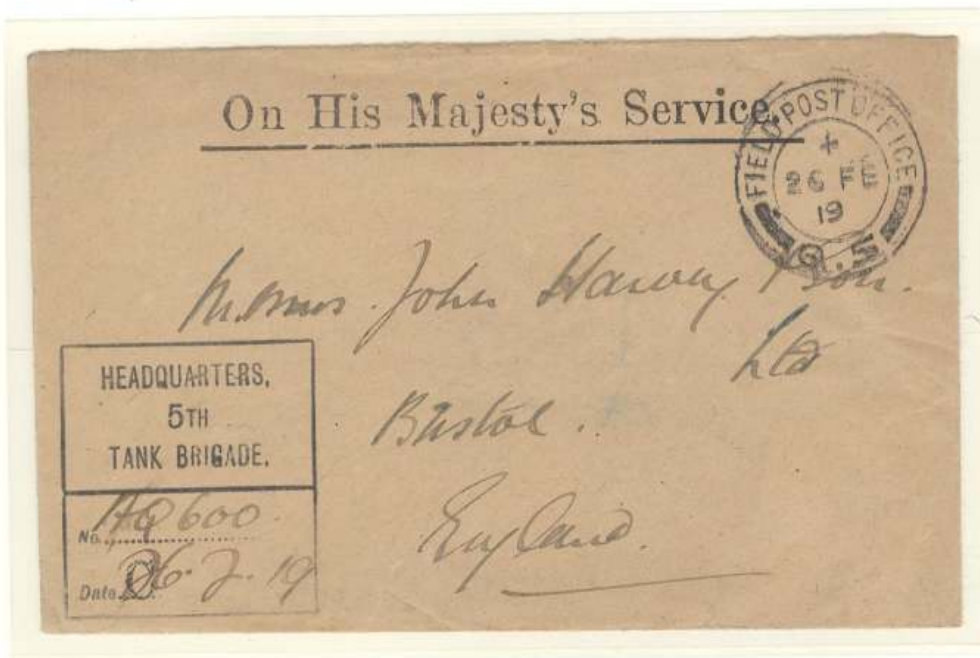 On His Majesty's Service.
FIELD POST OFFICE
+
26 FE
19
Messrs. John Harvey & Son.
Ltd
Bristol.
England.
HEADQUARTERS,
5TH
TANK BRIGADE.
No. HQ 600
Date 26.2.19